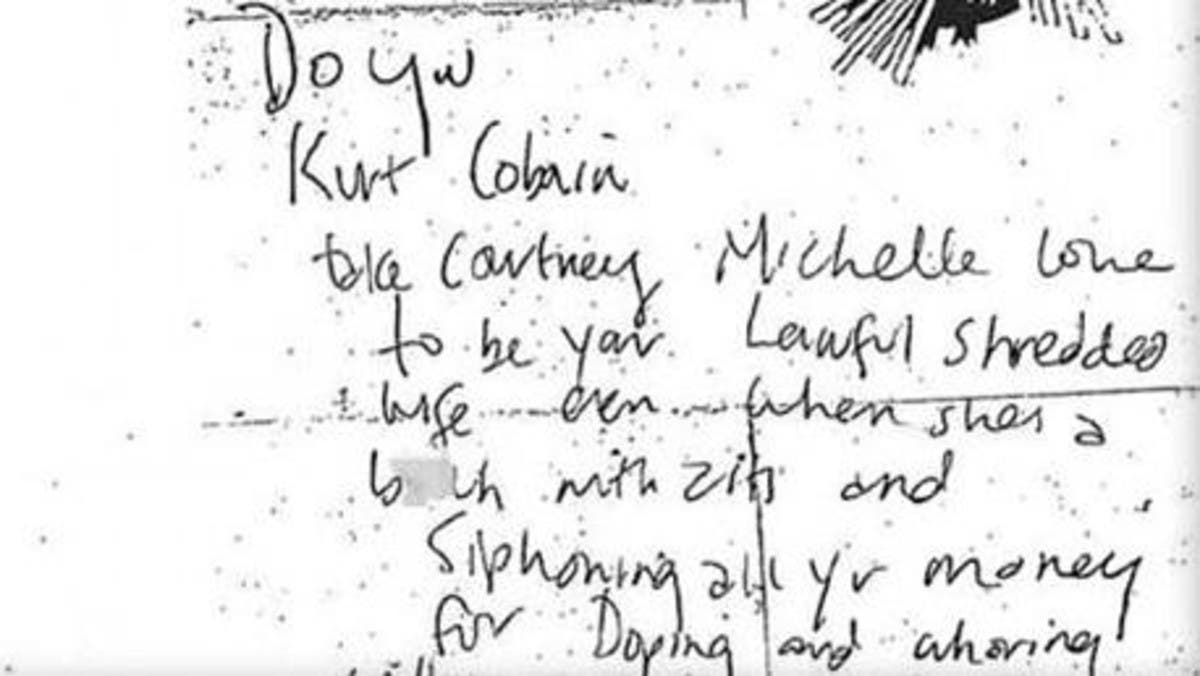 Do you
Kurt Cobain
take Courtney Michelle Love
to be your Lawful Shredded
wife even when shes a
b ch with zits and
Siphoning all yr money
for Doping and whoring